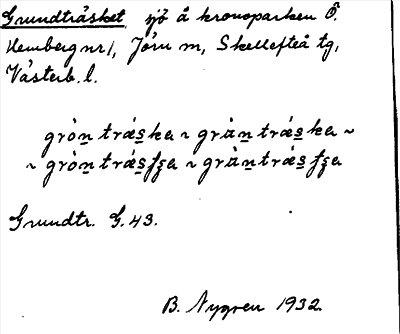 Grundträsket sjö å kronoparken Ö.
Hemberg nr 1, Jörn sn, Skellefteå tg,
Västerb. l.
gròn̲ trás̲ka ~ gràn̲ trás̲ka ~
~ gròn̲ trás̲ ~ gràn̲trás̲
Grundtr. G. 43.
B. Nygren 1932.